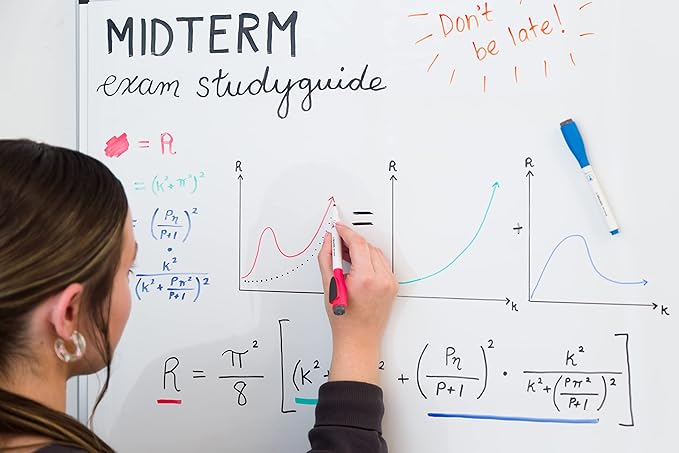 MIDTERM
exam studyguide
Don't
be late!
= R
= (k² + π²)²
= (Pη / P+1)²
·
k² / (k² + (Pπ² / P+1)²)
R
k
=
R
k
+
R
k
R = π² / 8 [(k² + (Pη / P+1)² · k² / k² + (Pπ² / P+1)²]